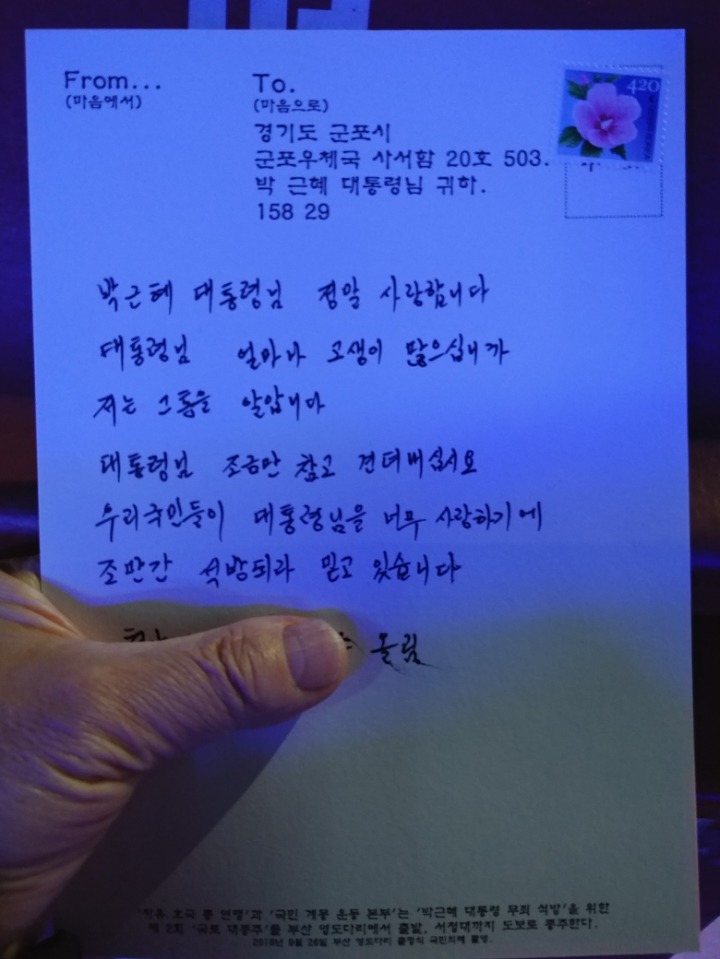 From...
(마음에서)
To.
(마음으로)
경기도 군포시
군포우체국 사서함 20호 503.
박 근혜 대통령님 귀하.
158 29
420
박근혜 대통령님 정말 사랑합니다
대통령님 얼마나 고생이 많으십니까
저는 그 통을 알압니다
대통령님 조금만 참고 견뎌내십시요
우리국민들이 대통령님을 너무 사랑하기에
조만간 석방되라 믿고 있습니다
올림
'국민 계몽 운동 본부'는 '박근혜 대통령 무죄 석방'을 위한
제 2회 '국토 대종주'를 부산 영도다리에서 출발, 서청대까지 도보로 종주한다.
2018년 9월 26일 부산 영도다리 출정식